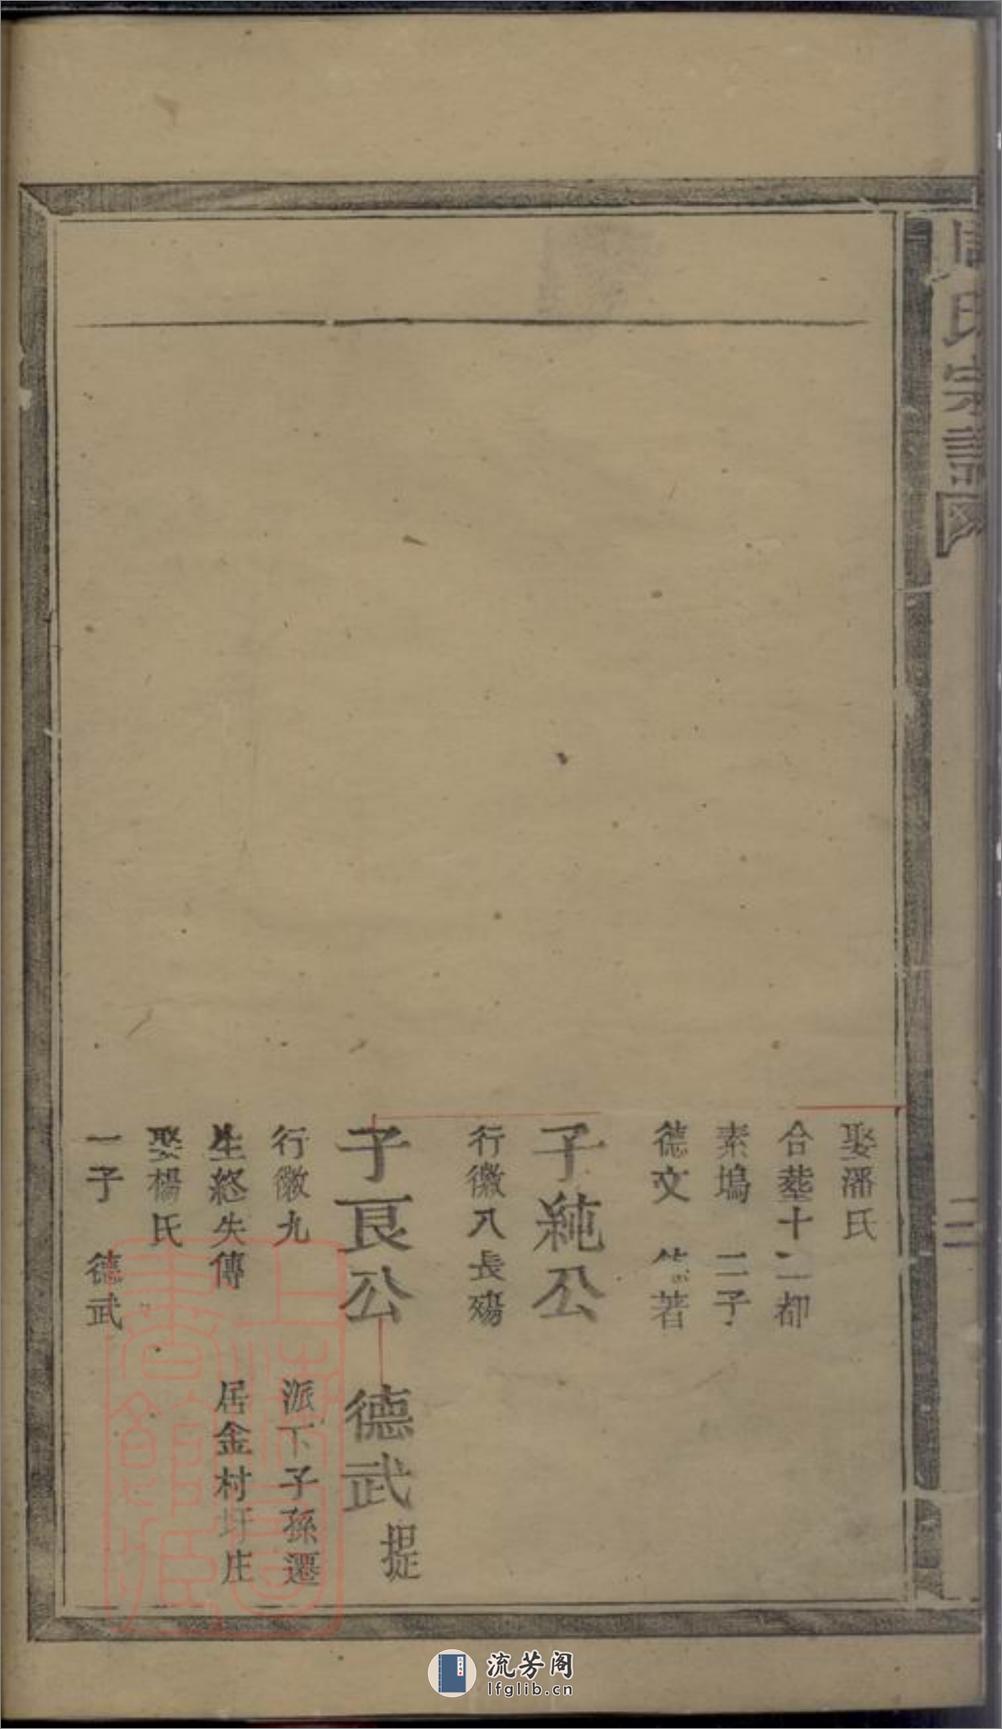 氏宗譜
二
娶潘氏
合塟十二都
素塢　二子
德文　德著
子純公
行徽八長殤
子良公
德武
提
行徽九
派下子孫遷
生終失傳
居金村圩庄
娶楊氏
一子　德武
上海圖書館藏
流芳阁
lfglib.cn